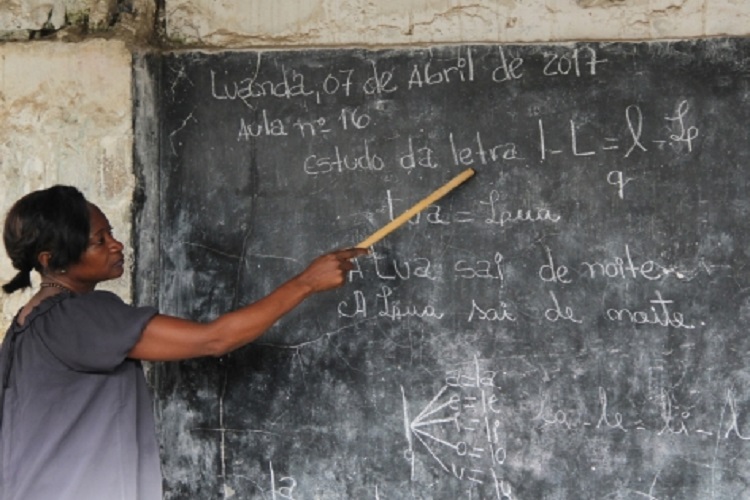 Luanda, 07 de Abril de 2017
Aula nº 16
Estudo da letra l - L = l - L
Lua = Lua
A Lua sai de noite.
A Lua sai de noite.
a = la
e = le
i = li
o = lo
u = lu
la - le = li - l
la